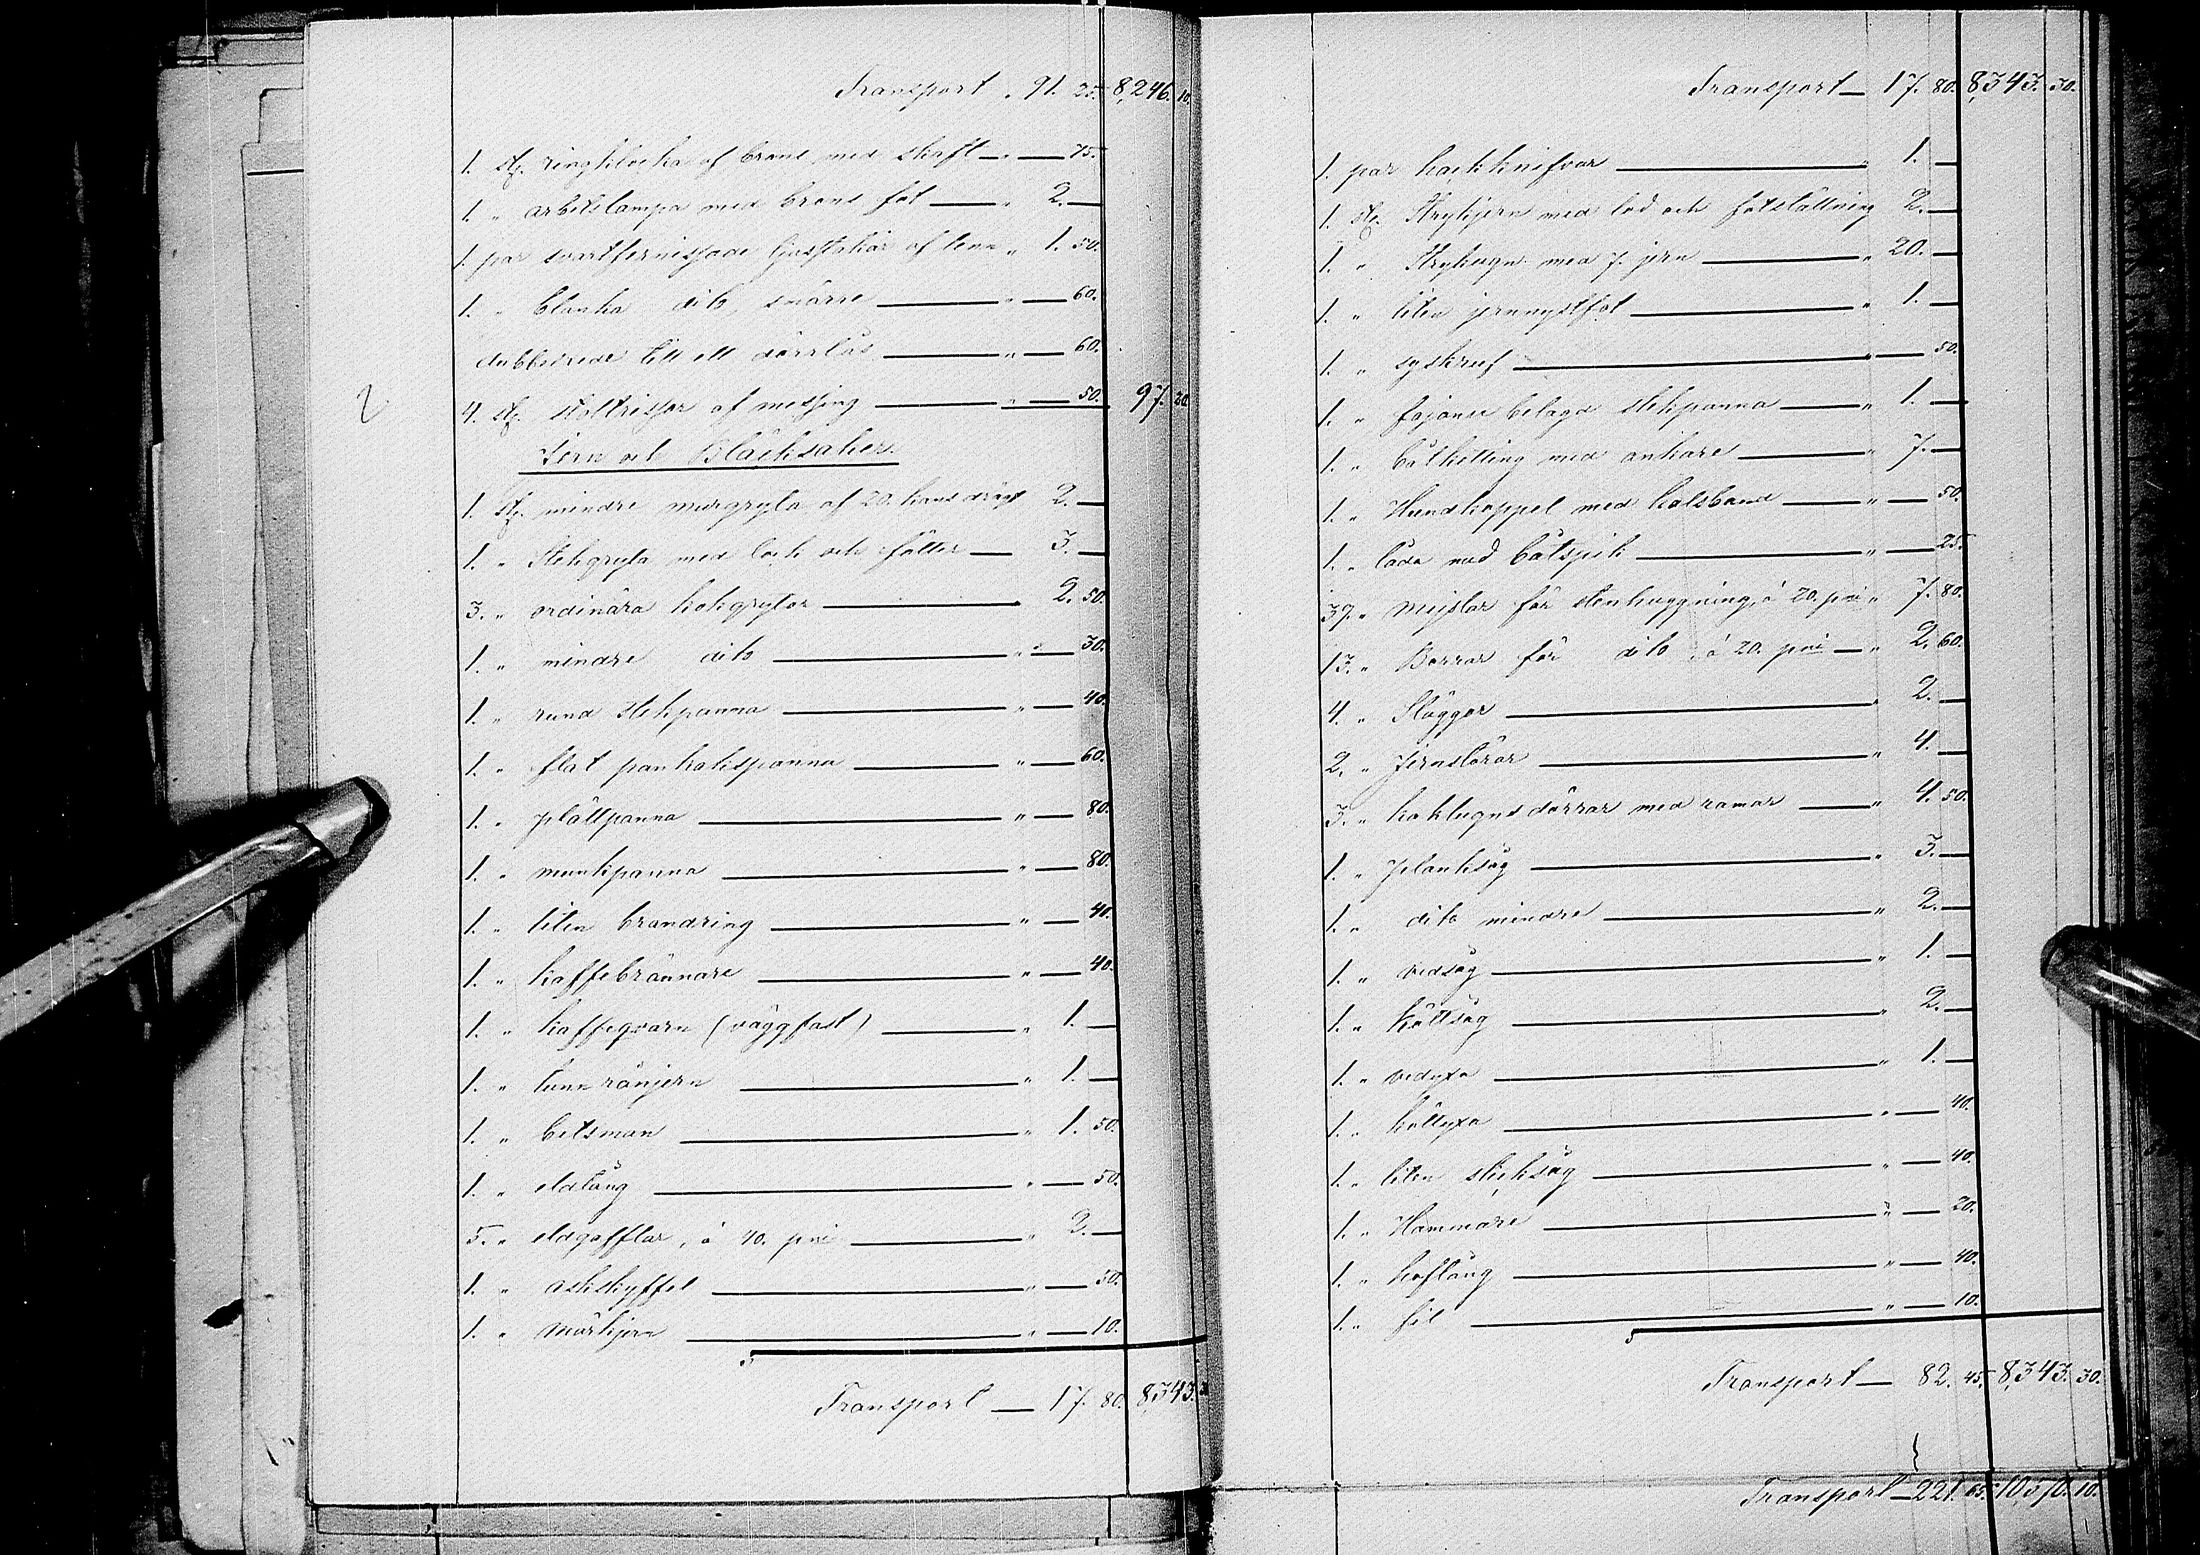 Transport . 91. 25. 8,246. 10.
1. st. ringklocka af brons med skaft — " — 75.
1. " arbetslampa med brons fot — " 2. —
1. par svartfernissade ljusstakar af tenn " 1. 50.
1. " blanka dito, smärre — " — 60.
dubbelrede till ett dörrlås — " — 60.
4. st. stolltrissor af messing — " — 50. 97. 20
Jern och Bläcksaker.
1. st. mindre murgryta af 20. kans drägt 2. —
1. " Stekgryta med lock och fötter — 3. —
3. " ordinära kokgrytor — " 2. 50.
1. " mindre dito — " — 30.
1. " rund stekpanna — " — 40.
1. " flat pankakspanna — " — 60.
1. " plättpanna — " — 80.
1. " munkpanna — " — 80.
1. " liten brandring — " — 40.
1. " kaffebrännare — " — 40.
1. " kaffeqvarn (väggfast) — " 1. —
1. " tunn rånjern — " 1. —
1. " betsman — " 1. 50.
1. " eldtång — " — 50.
5. " eldgafflar, à 40. pni — " 2. —
1. " askskyffel — " — 50.
1. " märkjern — " — 10.
Transport — 17. 80. 8,343. 30
2
Transport — 17. 80. 8,343. 30.
1. par hackknifvar — " 1. —
1. st. Strykjern med lod och fotställning 2. —
1. " Strykugn med 7. jern — " 20. —
1. " liten jernnystfot — " 1. —
1. " syskruf — " — 50.
1. " fajance belagd stekpanna — " 1. —
1. " båtkätting med ankare — " 7. —
1. " Hundkoppel med halsband — " — 50.
1. " låda med båtspik — " — 25.
37. " Mejslar för stenhuggning, à 20. pni " 7. 80.
13. " Borrar för dito, à 20. pni — " 2. 60.
4. " Släggor — " 2. —
2. " Jernstörar — " 4. —
3. " kaklugnsdörrar med ramar — " 4. 50.
1. " Planksåg — " 3. —
1. " dito mindre — " 2. —
1. " vedsåg — " 1. —
1. " köttsåg — " 2. —
1. " vedyxa — " 1. —
1. " köttyxa — " — 40.
1. " liten sticksåg — " — 40.
1. " Hammare — " — 20.
1. " hoftång — " — 40.
1. " fil — " — 10.
Transport — 82. 45. 8,343. 30.
Transport — 221. 65. 10570. 10.